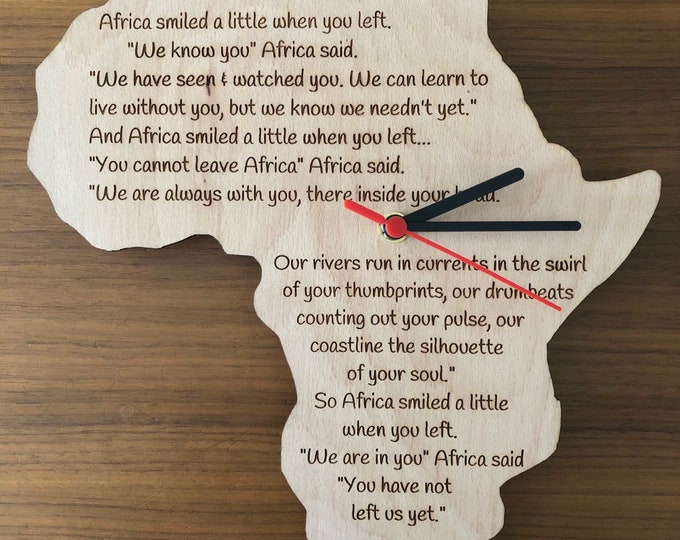 Africa smiled a little when you left.
"We know you" Africa said.
"We have seen & watched you. We can learn to
live without you, but we know we needn't yet."
And Africa smiled a little when you left...
"You cannot leave Africa" Africa said.
"We are always with you, there inside your head.
Our rivers run in currents in the swirl
of your thumbprints, our drumbeats
counting out your pulse, our
coastline the silhouette
of your soul."
So Africa smiled a little
when you left.
"We are in you" Africa said
"You have not
left us yet."